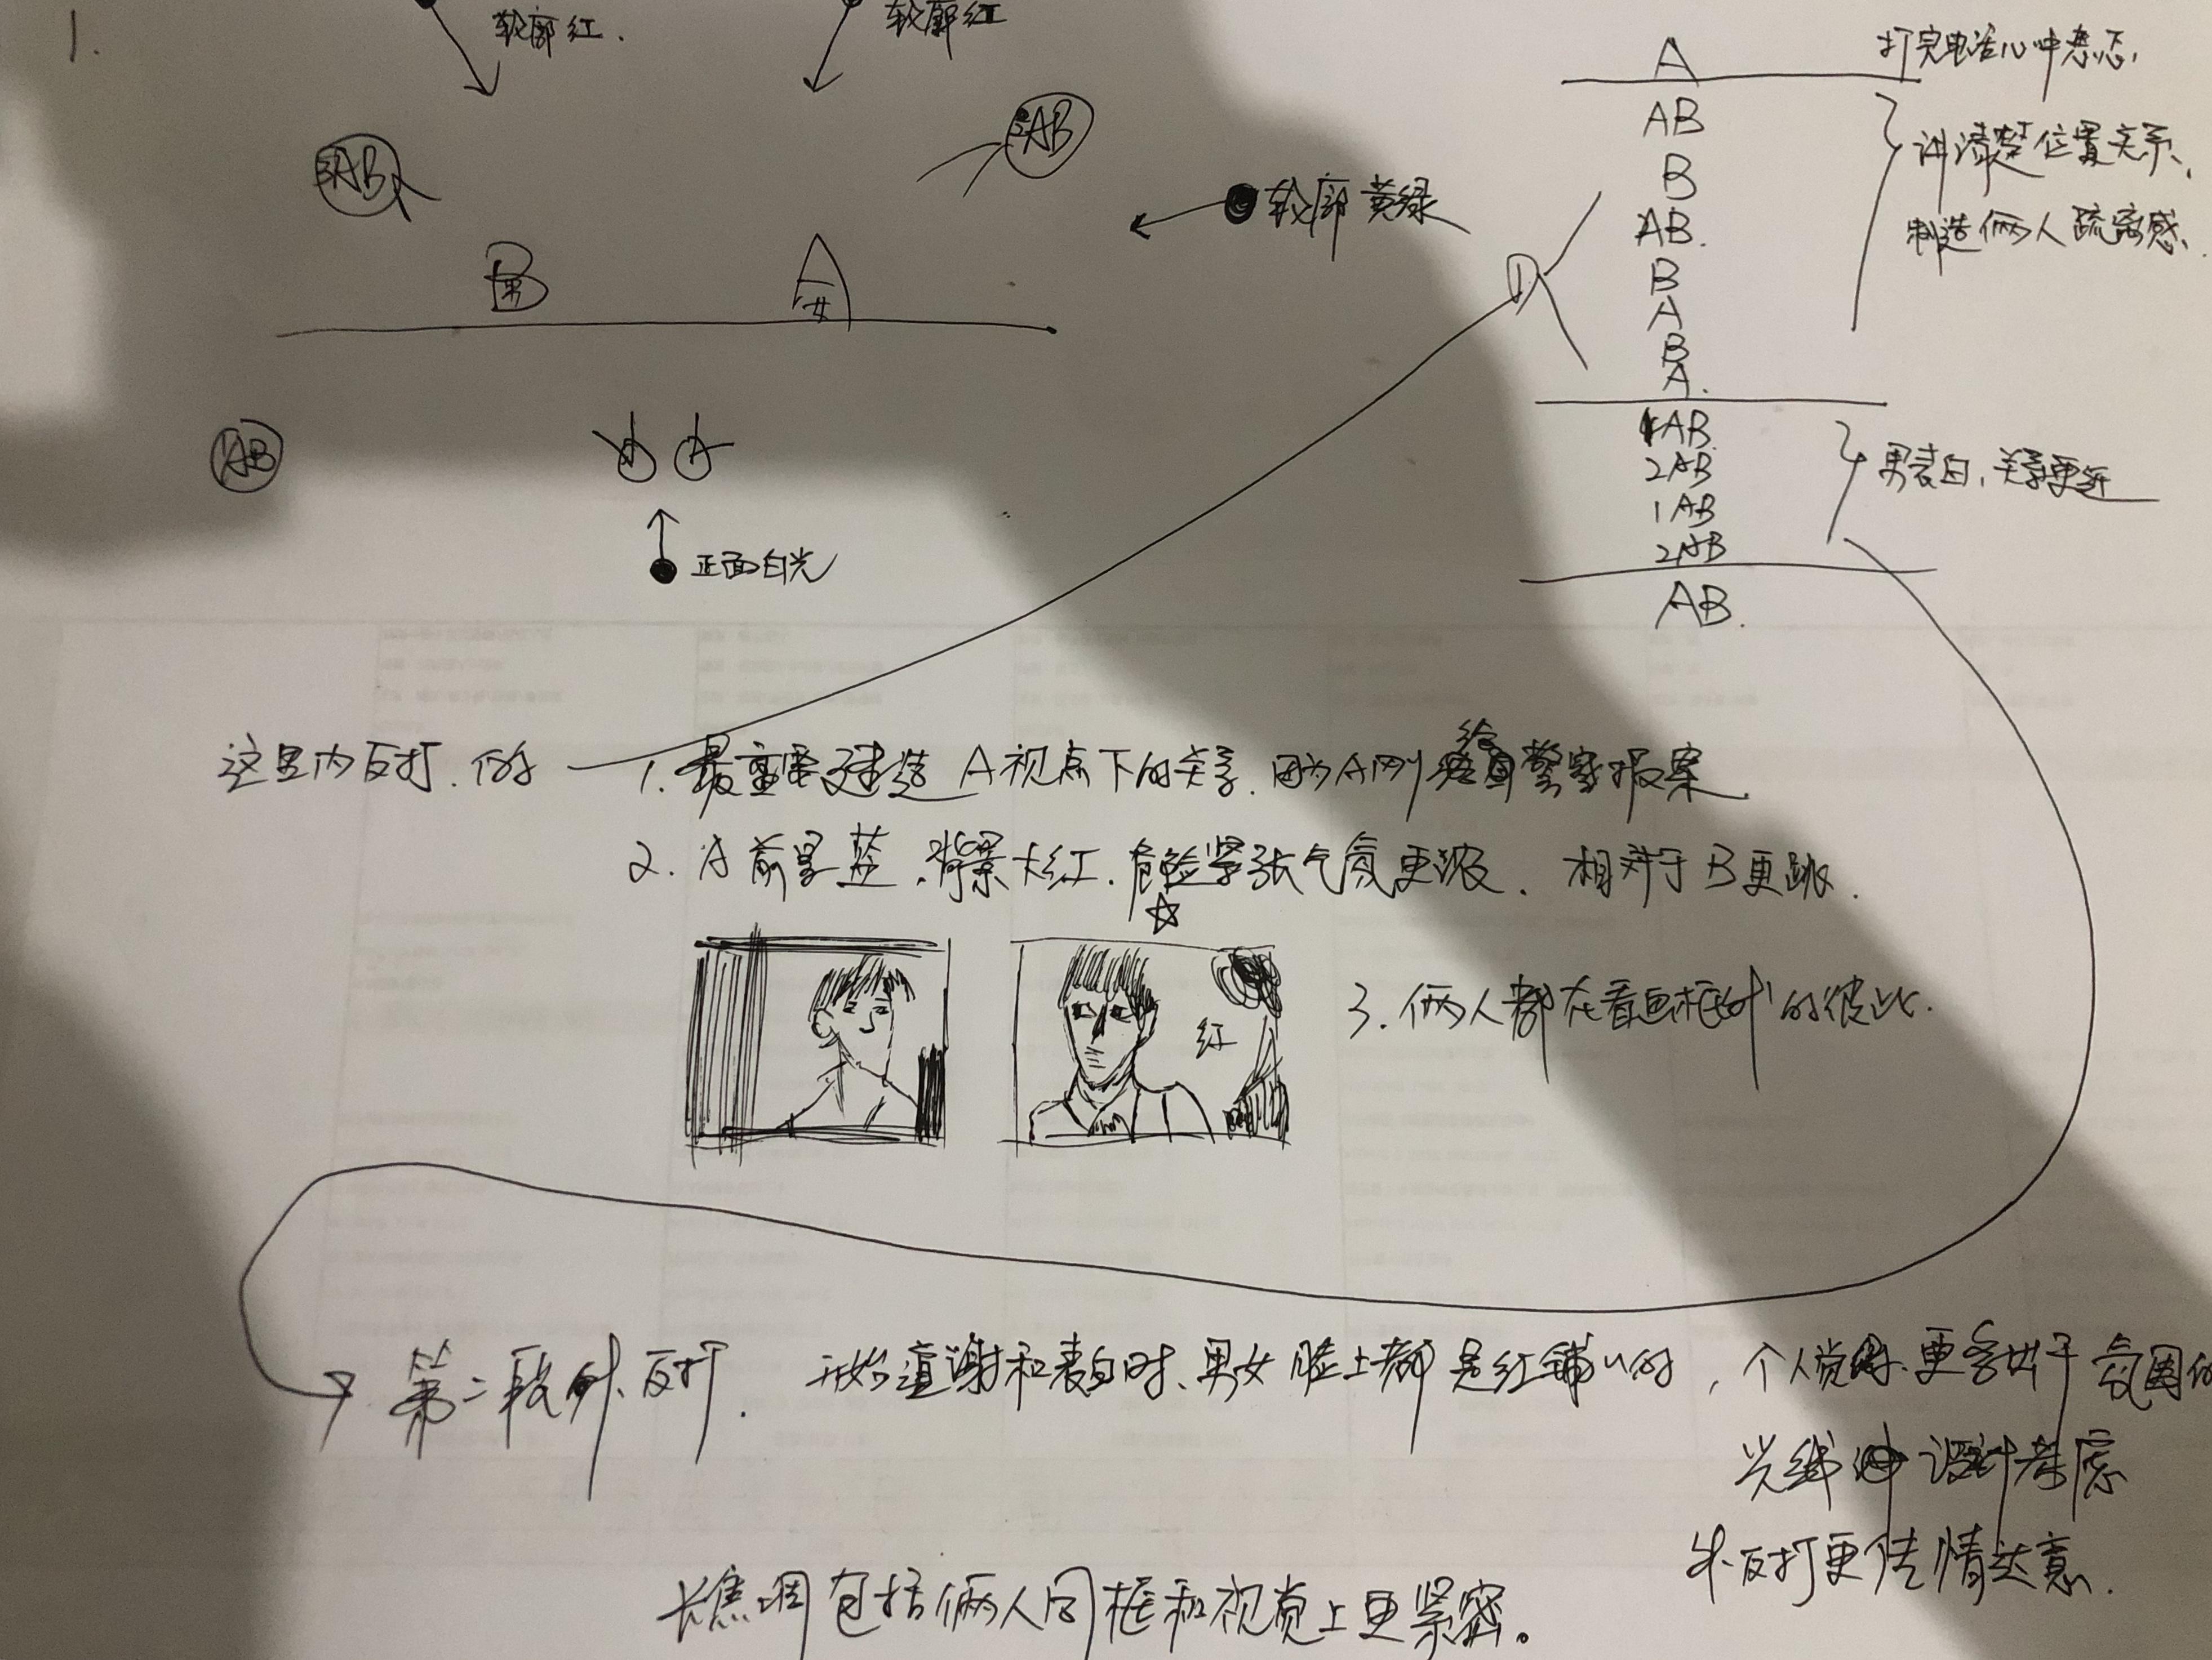 1.
轮廓红.
轮廓红
3AB
2AB
轮廓黄绿
B
男
A
女
1AB
B A
正面白光
A 打完电话心中忐忑,
AB
B
AB.
B
A
B
A.
讲清楚位置关系、
制造俩人疏离感、
1
1AB
2AB
1AB
2AB
男表白,关系更近
AB.
这里内反打.
1. 最重要建造A视点下的关系.因为A刚给警察报案.
2. 为前景蓝.背景大红.危险紧张气氛更浓. 相对于B更跳.
红
3. 俩人都在看画框外的彼此.
第二段外反打. 开始道谢和表白时、男女脸上都是红铺 的,个人觉得.更多出于氛围的
光线 设计考虑
外反打更传情达意.
长焦 包括俩人同框和视觉上更紧密。